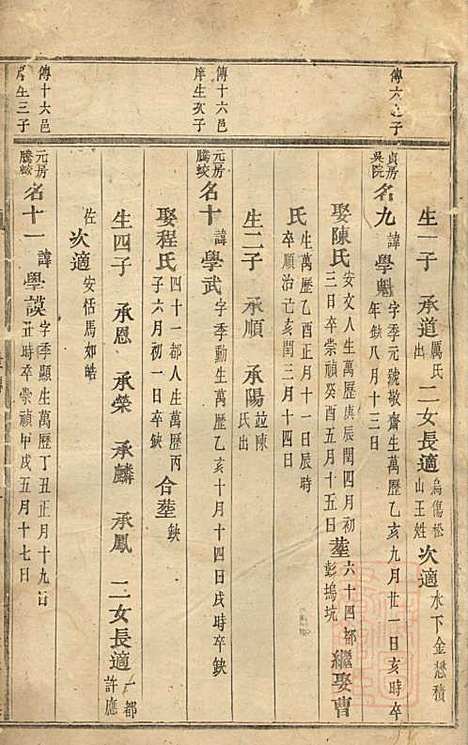 傳六之子
傳十六邑
庠生次子
傳十六邑
庠生三子
生一子 承道 厲氏出 二女長適 烏傷松山王姓 次適 水下金懋積
貞房吳院 名九 諱學魁 字季元號敬齋生萬歷乙亥九月廿一日亥時卒年缺八月十三日
娶陳氏 安文人生萬歷庚辰閏四月初三日卒崇禎癸酉五月十五日 塟 六十四都彭塢坑 繼娶曹
氏 生萬歷乙酉正月十一日辰時卒順治己亥閏三月十四日
生二子 承順 承陽 竝陳氏出
元房騰蛟 名十 諱學武 字季勳生萬歷乙亥十月十四日戌時卒缺
娶程氏 四十一都人生萬歷丙子六月初一日卒缺 合塟 缺
生四子 承恩 承榮 承麟 承鳳 二女長適 都許應
佐 次適 安恬馬如皓
元房騰蛟 名十一 諱學謨 字季顯生萬歷丁丑正月十九日丑時卒崇禎甲戌五月十七日